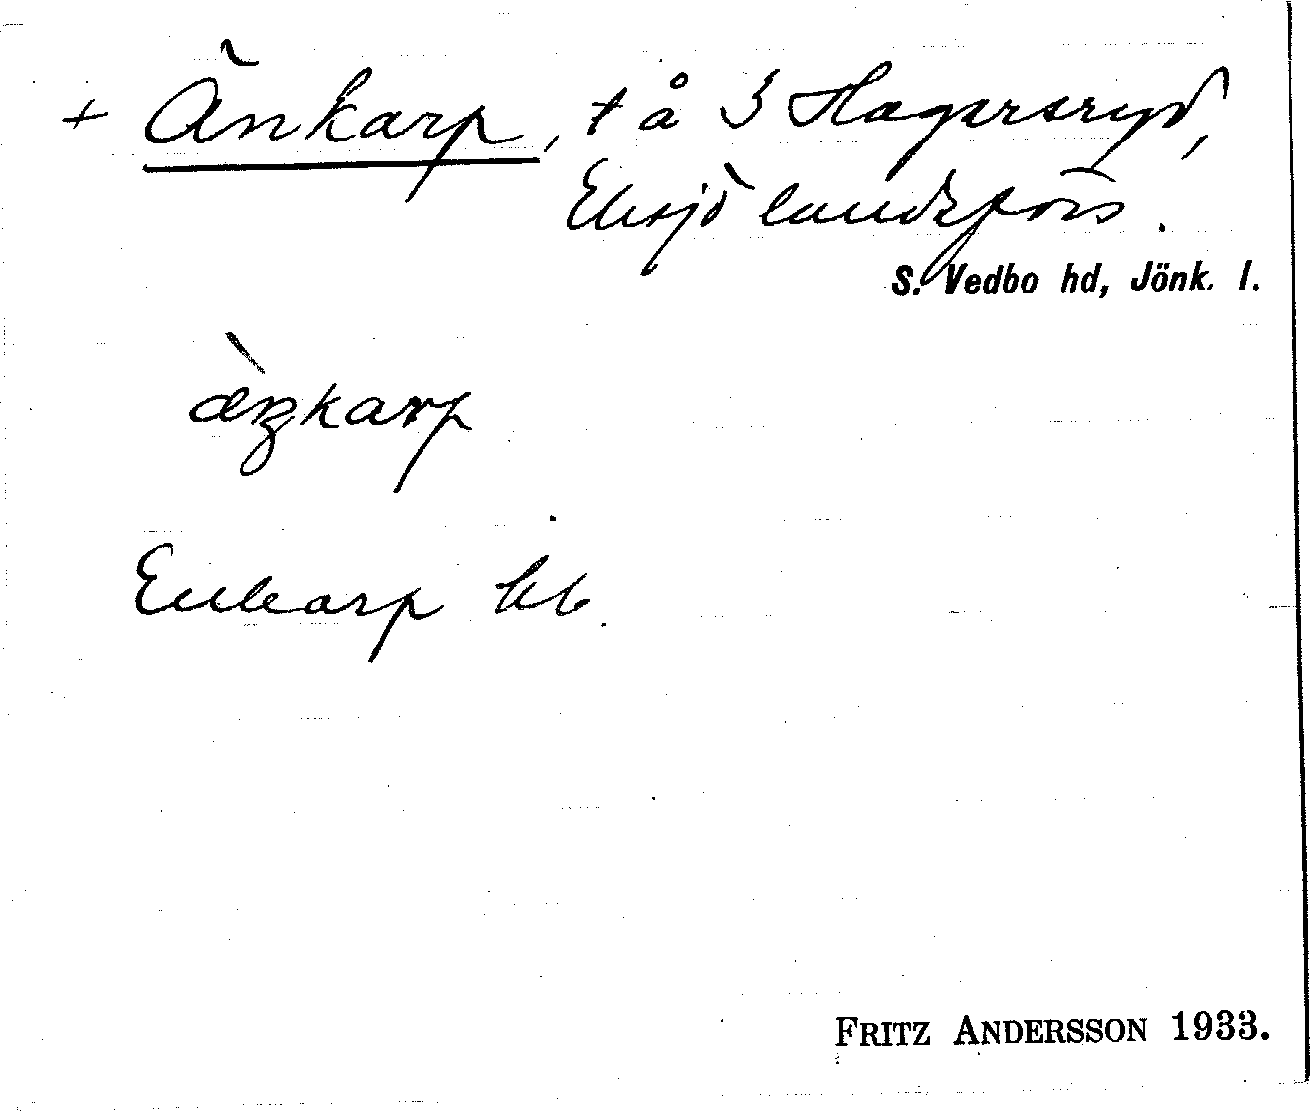 + Änkarp, t å 3 Hagarsryd,
Eksjö landsförs.
S. Vedbo hd, Jönk. l.
æ̀ŋkarp
Enkarp kb.
FRITZ ANDERSSON 1933.